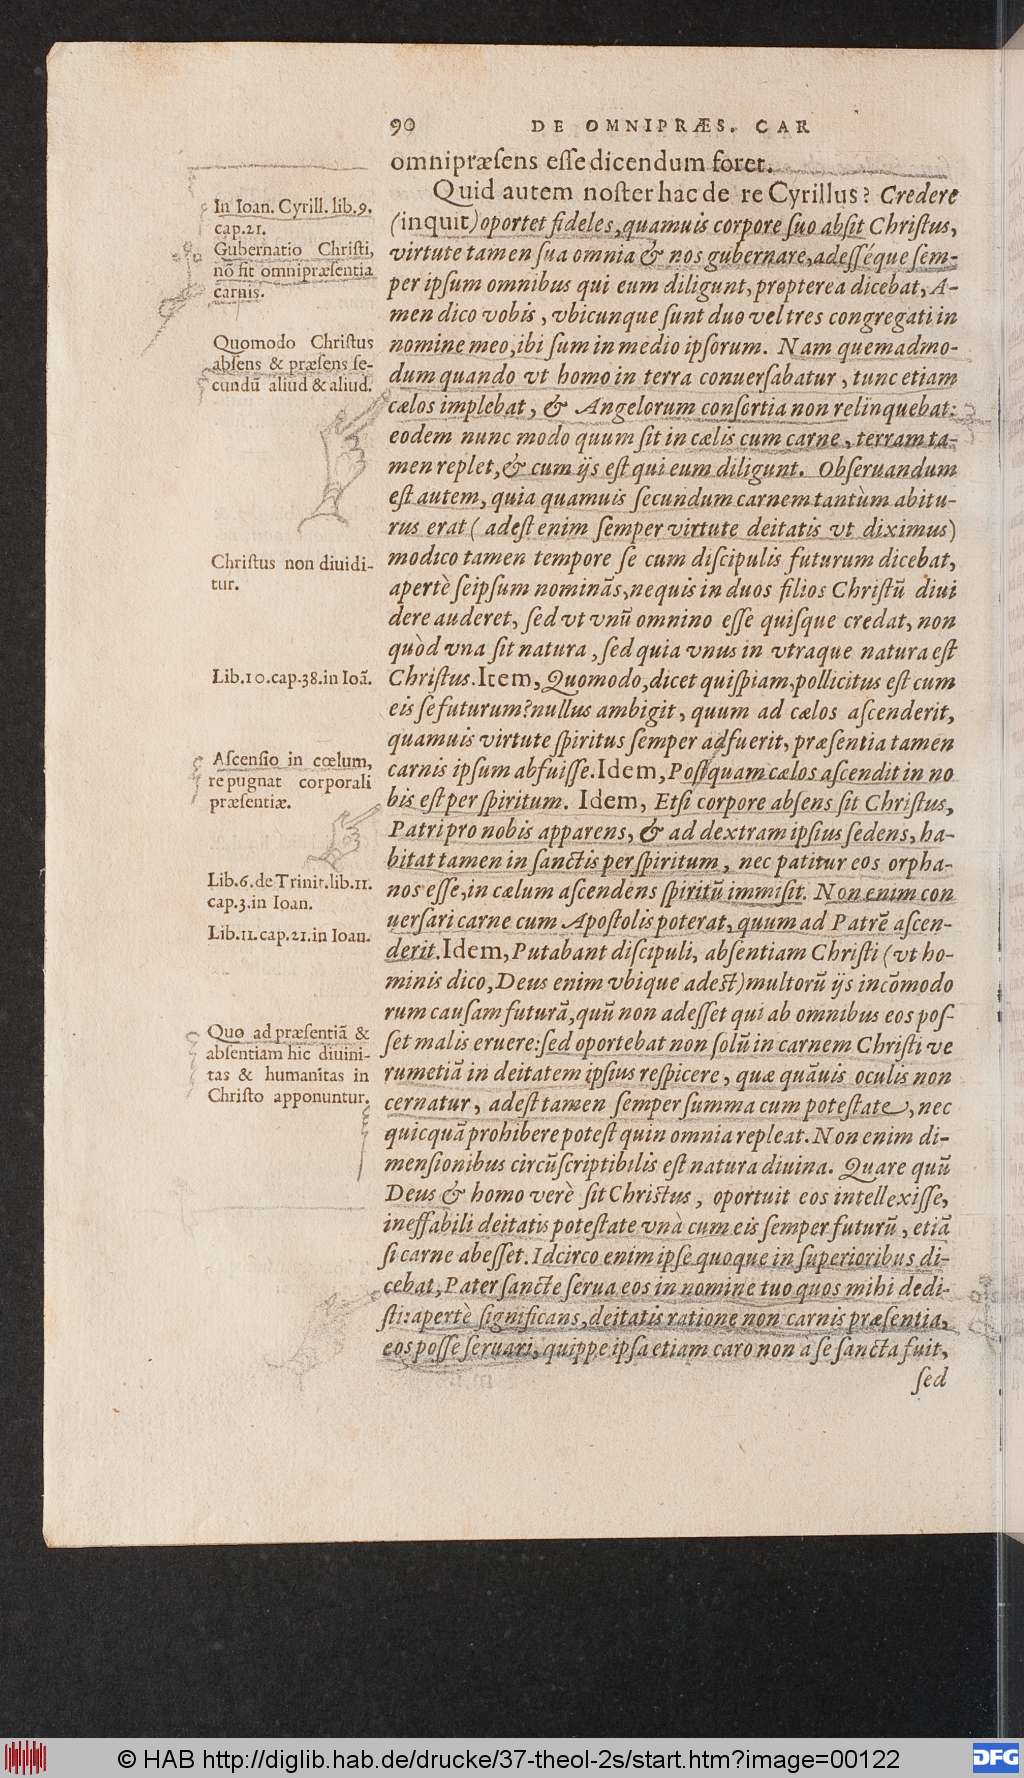 90 DE OMNIPRÆS. CAR
omnipræsens esse dicendum foret.
Quid autem noster hac de re Cyrillus? Credere
(inquit) oportet fideles, quamuis corpore suo absit Christus,
virtute tamen sua omnia & nos gubernare, adesséque sem-
per ipsum omnibus qui eum diligunt, propterea dicebat, A-
men dico vobis, vbicunque sunt duo vel tres congregati in
nomine meo, ibi sum in medio ipsorum. Nam quemadmo-
dum quando vt homo in terra conuersabatur, tunc etiam
cælos implebat, & Angelorum consortia non relinquebat:
eodem nunc modo quum sit in cælis cum carne, terram ta-
men replet, & cum ijs est qui eum diligunt. Obseruandum
est autem, quia quamuis secundum carnem tantùm abitu-
rus erat ( adest enim semper virtute deitatis vt diximus)
modico tamen tempore se cum discipulis futurum dicebat,
apertè seipsum nominãs, nequis in duos filios Christũ diui
dere auderet, sed vt vnũ omnino esse quisque credat, non
quòd vna sit natura, sed quia vnus in vtraque natura est
Christus. Item, Quomodo, dicet quispiam, pollicitus est cum
eis se futurum? nullus ambigit, quum ad cælos ascenderit,
quamuis virtute spiritus semper adfuerit, præsentia tamen
carnis ipsum abfuisse. Idem, Postquam cælos ascendit in no
bis est per spiritum. Idem, Etsi corpore absens sit Christus,
Patri pro nobis apparens, & ad dextram ipsius sedens, ha-
bitat tamen in sanctis per spiritum, nec patitur eos orpha-
nos esse, in cælum ascendens spiritũ immisit. Non enim con
uersari carne cum Apostolis poterat, quum ad Patrẽ ascen-
derit. Idem, Putabant discipuli, absentiam Christi (vt ho-
minis dico, Deus enim vbique adest) multorũ ijs incõmodo
rum causam futurã, quũ non adesset qui ab omnibus eos pos-
set malis eruere: sed oportebat non solũ in carnem Christi ve
rumetiã in deitatem ipsius respicere, quæ quãuis oculis non
cernatur, adest tamen semper summa cum potestate, nec
quicquã prohibere potest quin omnia repleat. Non enim di-
mensionibus circũscriptibilis est natura diuina. Quare quũ
Deus & homo verè sit Christus, oportuit eos intellexisse,
ineffabili deitatis potestate vnà cum eis semper futurũ, etiã
si carne abesset. Idcirco enim ipse quoque in superioribus di-
cebat, Pater sancte serua eos in nomine tuo quos mihi dedi-
sti: apertè significans, deitatis ratione non carnis præsentia,
eos posse seruari, quippe ipsa etiam caro non à se sancta fuit,
sed
In Ioan. Cyrill. lib. 9.
cap. 21.
Gubernatio Christi,
nõ fit omnipræsentia
carnis.
Quomodo Christus
absens & præsens se-
cundũ aliud & aliud.
Christus non diuidi-
tur.
Lib. 10. cap. 38. in Ioã.
Ascensio in cœlum,
repugnat corporali
præsentiæ.
Lib. 6. de Trinit. lib. 11.
cap. 3. in Ioan.
Lib. 11. cap. 21. in Ioan.
Quo ad præsentiã &
absentiam hic diuini-
tas & humanitas in
Christo apponuntur.
© HAB http://diglib.hab.de/drucke/37-theol-2s/start.htm?image=00122
DFG